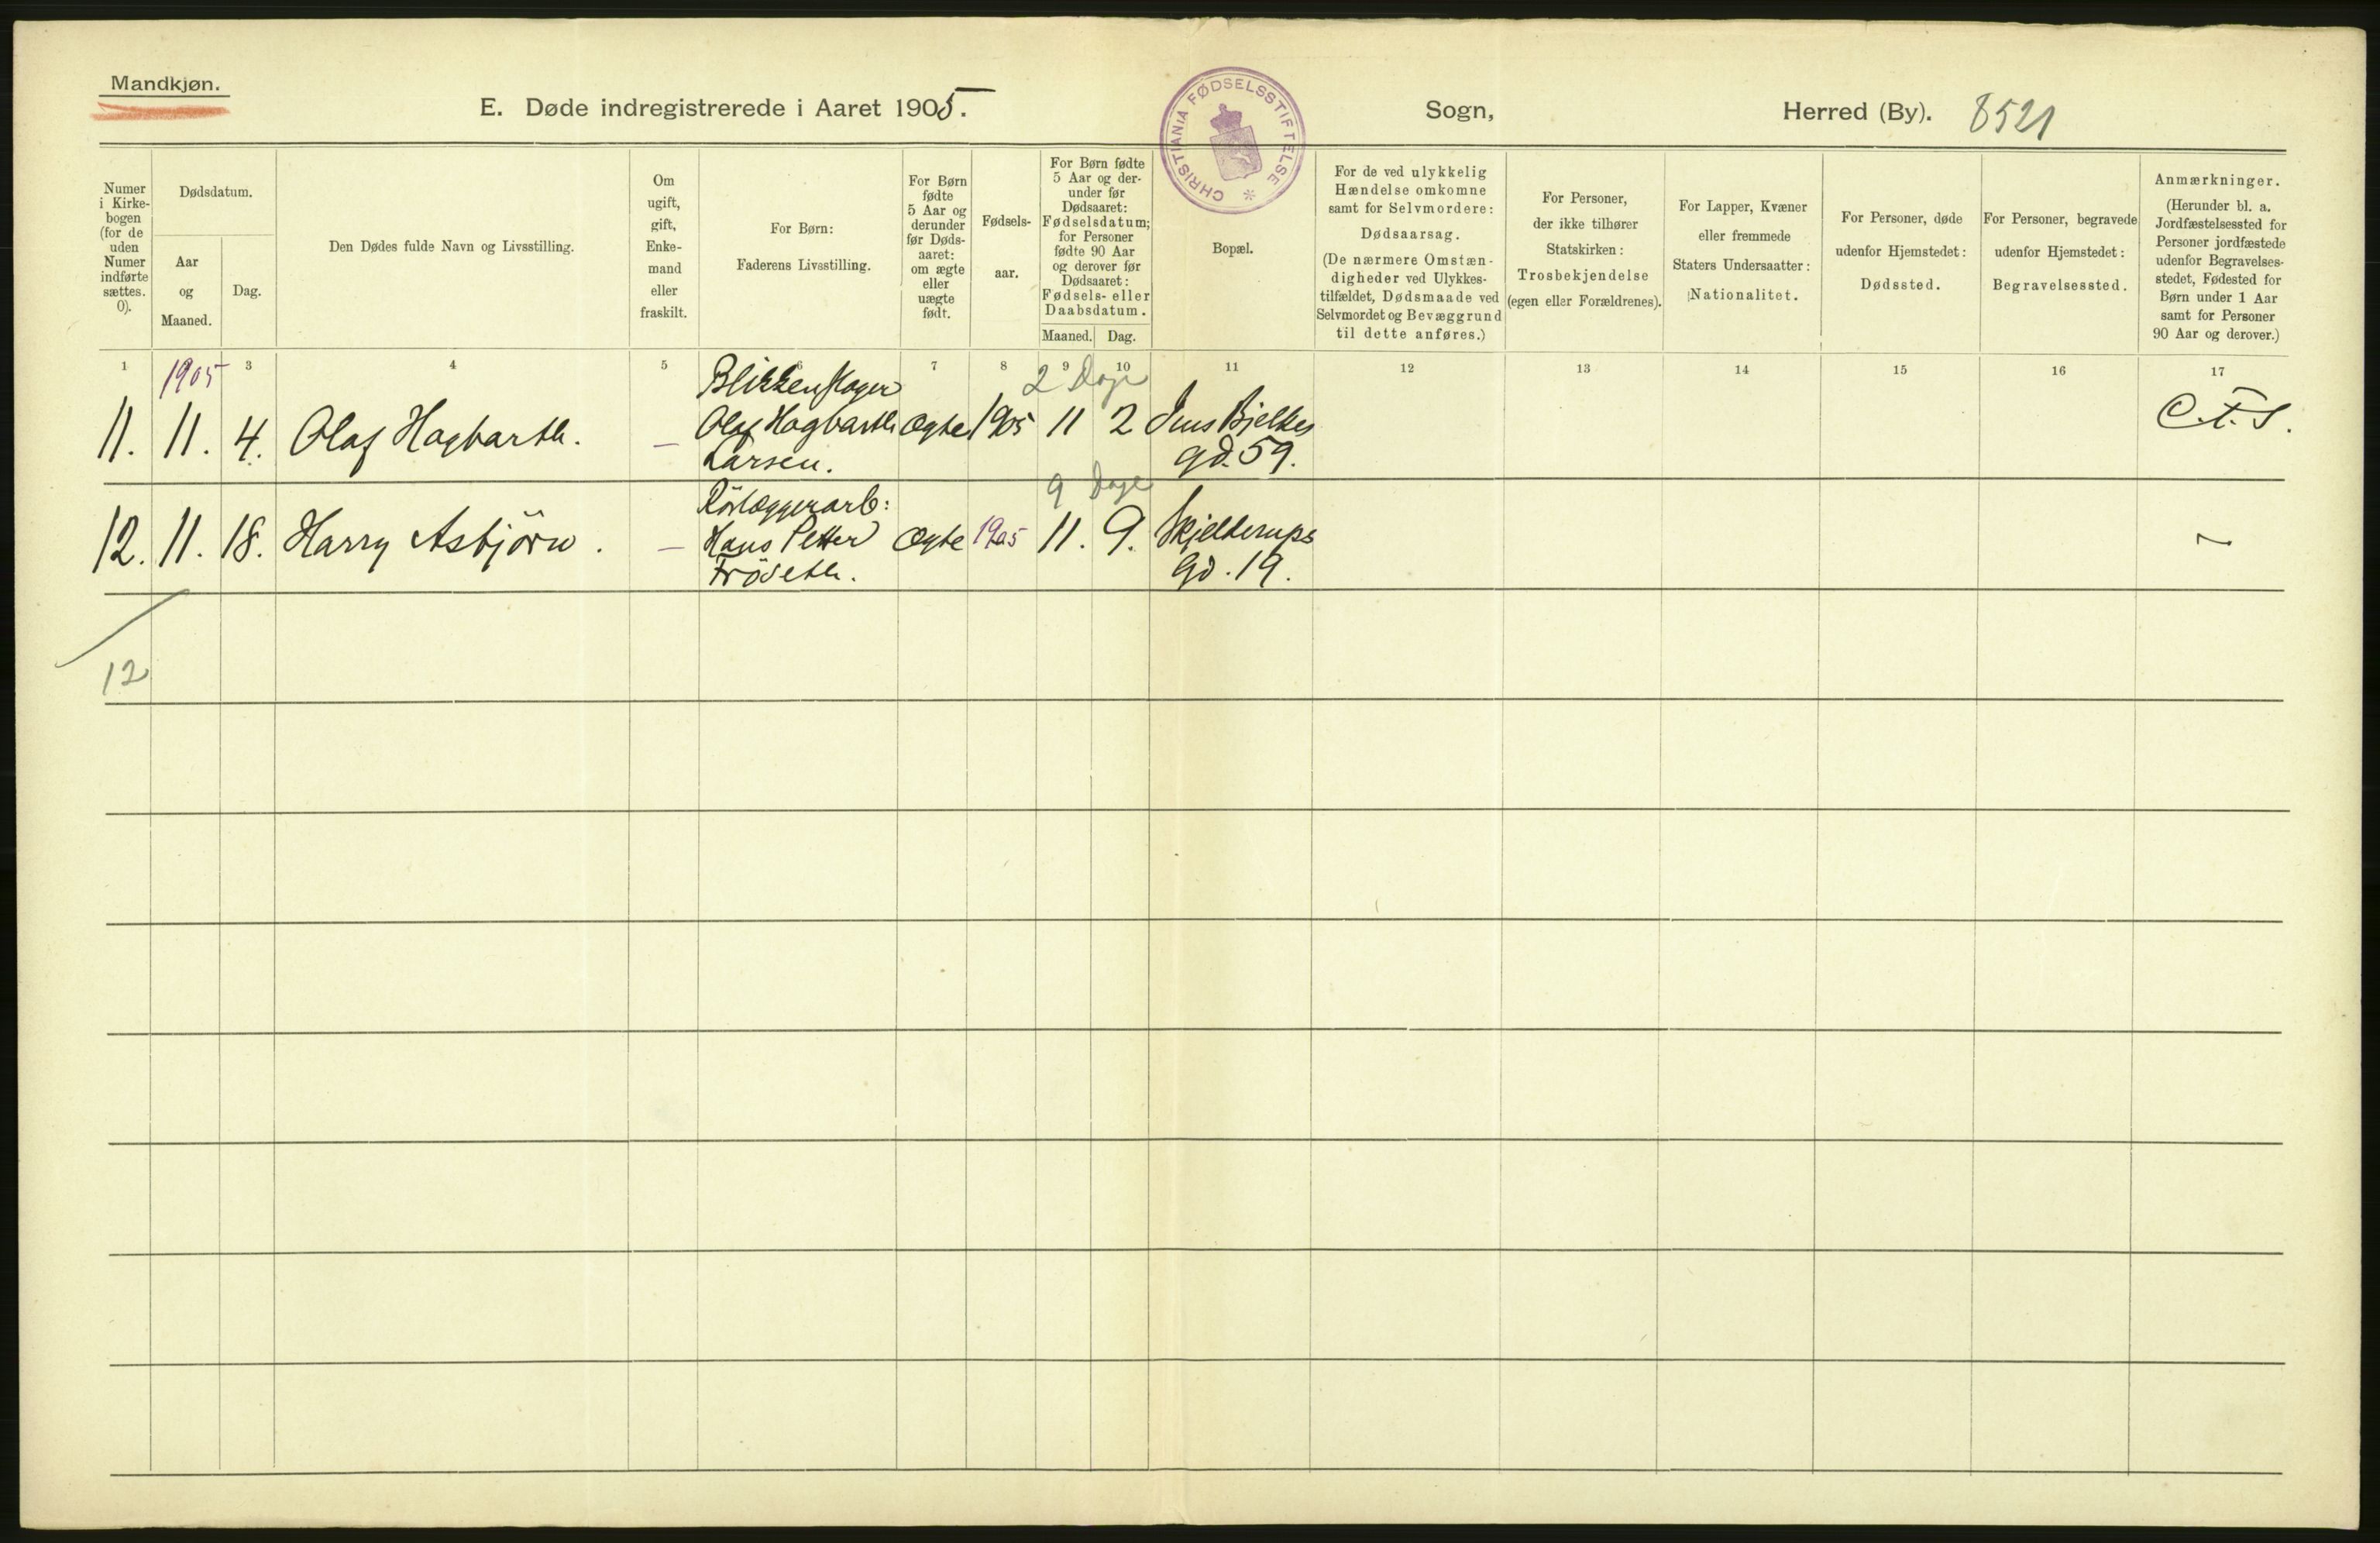 Mandkjøn.
E. Døde indregistrerede i Aaret 1905.
CHRISTIANIA FØDSELSSTIFTELSE *
Sogn,
Herred (By).
8521
Numer
i Kirke-
bogen
(for de
uden
Numer
indførte
sættes.
0).
Dødsdatum.
Aar
og
Maaned.
Dag.
Den Dødes fulde Navn og Livsstilling.
Om
ugift,
gift,
Enke-
mand
eller
fraskilt.
For Børn:
Faderens Livsstilling.
For Børn
fødte
5 Aar og
derunder
før Døds-
aaret:
om ægte
eller
uægte
født.
Fødsels-
aar.
For Børn fødte
5 Aar og der-
under før
Dødsaaret:
Fødselsdatum;
for Personer
fødte 90 Aar
og derover før
Dødsaaret:
Fødsels- eller
Daabsdatum.
Maaned.
Dag.
Bopæl.
For de ved ulykkelig
Hændelse omkomne
samt for Selvmordere:
Dødsaarsag.
(De nærmere Omstæn-
digheder ved Ulykkes-
tilfældet, Dødsmaade ved
Selvmordet og Bevæggrund
til dette anføres.)
For Personer,
der ikke tilhører
Statskirken:
Trosbekjendelse
(egen eller Forældrenes).
For Lapper, Kvæner
eller fremmede
Staters Undersaatter:
Nationalitet.
For Personer, døde
udenfor Hjemstedet:
Dødssted.
For Personer, begravede
udenfor Hjemstedet:
Begravelsessted.
Anmærkninger.
(Herunder bl. a.
Jordfæstelsessted for
Personer jordfæstede
udenfor Begravelses-
stedet, Fødested for
Børn under 1 Aar
samt for Personer
90 Aar og derover.)
1 3 4 5 6 7 8 9 10 11 12 13 14 15 16 17
1905
11. 11. 4. Olaf Hagbarth. —
Blikkenslager
Olaf Hagbarth
Larsen.
Ægte 1905
2 Dage
11 2
Jens Bjelkes
gd. 59.
12. 11. 18. Harry Asbjörn. —
Rörlæggerarb:
Hans Petter
Fröseth.
Ægte 1905
9 Dage
11. 9.
Skjelderups
Gd. 19.
12